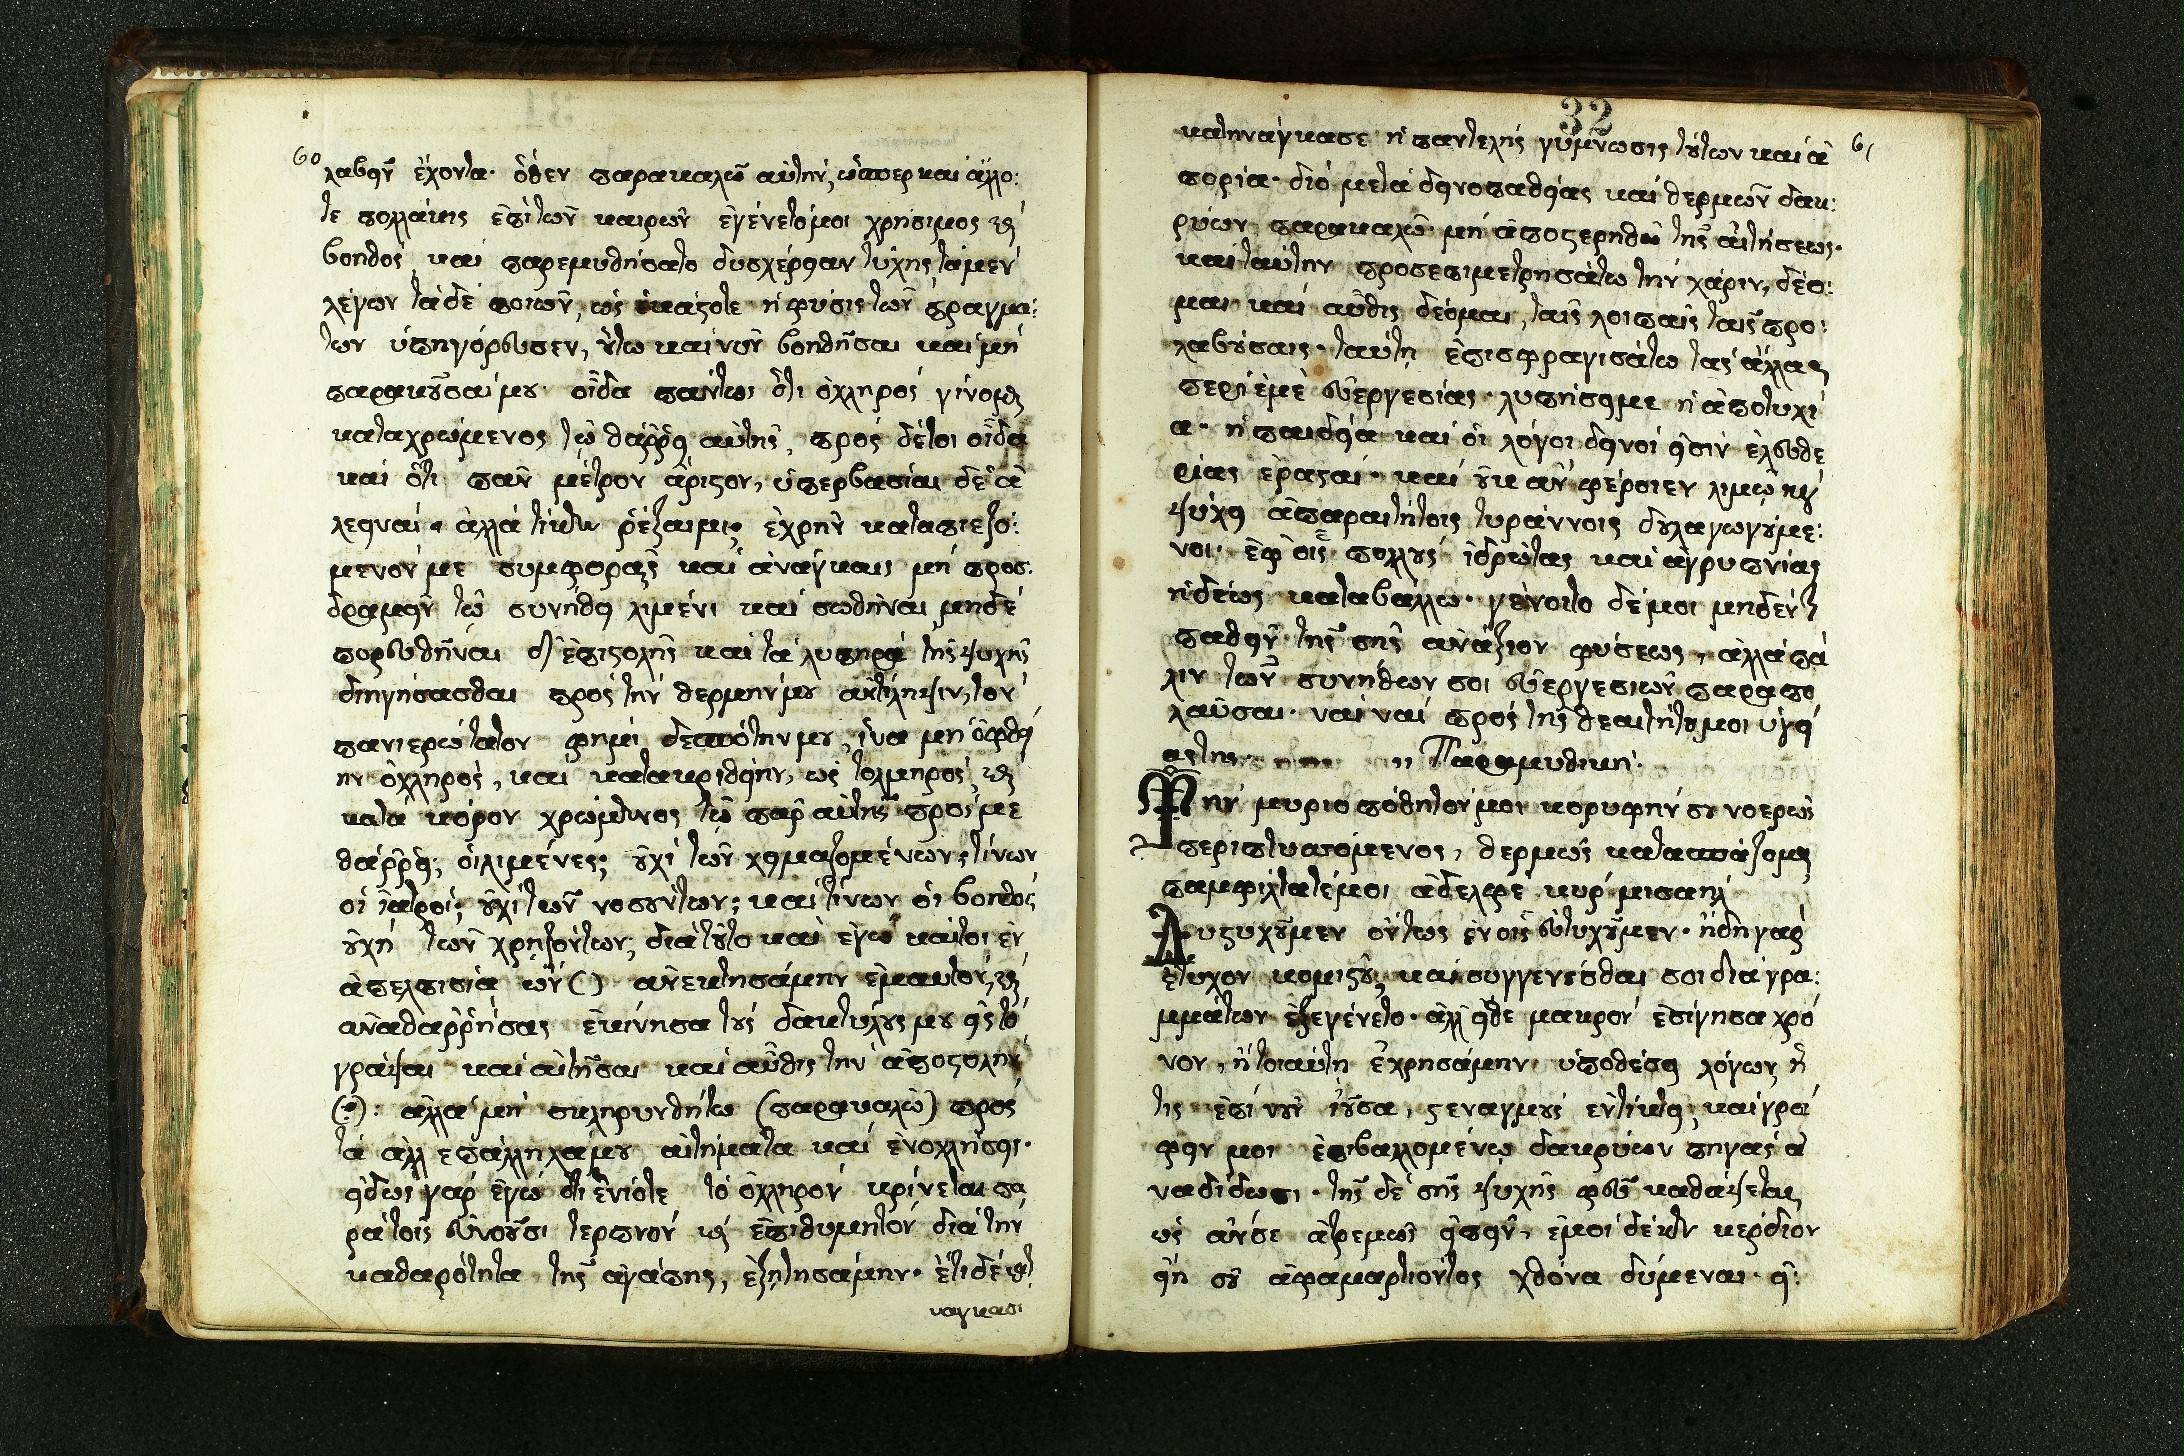 60
λαβεῖν ἔχοντα· ὅθεν παρακαλῶ αὐτήν, ὥσπερ καὶ ἄλλο:
τε πολλάκις ἐπὶ τῶν καιρῶν ἐγένετό μοι χρήσιμος καὶ
βοηθός, καὶ παρεμυθήσατο δυσχέρειαν τύχης τὰ μὲν
λέγων τὰ δὲ ποιῶν, ὡς ἑκάστοτε ἡ φύσις τῶν πραγμά:
των ὑπηγόρευσεν, οὕτω καὶ νῦν βοηθῆσαι καὶ μὴ
παρακοῦσαί μου· οἶδα πάντως ὅτι ὀχληρὸς γίνομαι
καταχρώμενος τῷ θάῤῥει αὐτῆς, πρὸς δέ τοι οἶδα
καὶ ὅτι πᾶν μέτρον ἄριστον, ὑπερβασίαι δὲ ἀ
λεγειναί· ἀλλὰ τί κεν ῥέξαιμι; ἐχρῆν καταπιεζό:
μενόν με συμφοραῖς καὶ ἀνάγκαις μὴ προσ:
δραμεῖν τῷ συνήθει λιμένι καὶ σωθῆναι, μηδὲ
πορευθῆναι δι' ἐπιστολῆς καὶ τὰ λυπηρὰ τῆς ψυχῆς
διηγήσασθαι πρὸς τὴν θερμήν μου ἀντίληψιν, τὸν
πανιερώτατον φημὶ δεσπότην μου, ἵνα μὴ ὀφθεί
ην ὀχληρός, καὶ κατακριθείην, ὡς τολμηρὸς καὶ
κατὰ κόρον χρώμενος τῷ παρ' αὐτῆς πρός με
θάῤῥει; οἱ λιμένες; οὐχὶ τῶν χειμαζομένων; τίνων
οἱ ἰατροί; οὐχὶ τῶν νοσούντων; καὶ τίνων οἱ βοηθοὶ
οὐχὶ τῶν χρηζόντων; διὰ τοῦτο καὶ ἐγὼ καίτοι ἐν
ἀπελπισίᾳ ὢν () ἀνεκτησάμην ἐμαυτόν, καὶ
ἀναθαῤῥήσας ἐκίνησα τοὺς δακτύλους μου εἰς τὸ
γράψαι καὶ αἰτῆσαι καὶ αὖθις τὴν ἀποστολὴν
(): ἀλλὰ μὴ σκληρυνθήτω (παρακαλῶ) πρὸς
τὰ ἀλλεπάλληλά μου αἰτήματα καὶ ἐνοχλήσεις·
εἰδὼς γὰρ ἐγὼ ὅτι ἐνίοτε τὸ ὀχληρὸν κρίνεται πα
ρὰ τοῖς εὐνοοῦσι τερπνὸν καὶ ἐπιθυμητὸν διὰ τὴν
καθαρότητα τῆς ἀγάπης, ἐζητησάμην· ἔτι δὲ καὶ
ναγκασι
32
61
κατηνάγκασε ἡ παντελὴς γύμνωσις τούτων καὶ ἀ
πορία· διὸ μετὰ δεινοπαθείας καὶ θερμῶν δακ:
ρύων παρακαλῶ· μὴ ἀποστερηθῶ τῆς αἰτήσεως·
καὶ ταύτην προσεπιμετρησάτω τὴν χάριν, δέο:
μαι καὶ αὖθις δέομαι, ταῖς λοιπαῖς ταῖς προ:
λαβούσαις· ταύτῃ ἐπισφραγισάτω τὰς ἄλλας
περὶ ἐμὲ εὐεργεσίας· λυπήσει με ἡ ἀποτυχί
α· ἡ παιδεία καὶ οἱ λόγοι δεινοὶ εἰσὶν ἐλευθε
ρίας ἐρασταί· καὶ οὐκ ἂν φέροιεν λιμῷ καὶ
ψύχει ἀπαραιτήτοις τυράννοις δουλαγωγούμε:
νοι· ἐφ' οἷς πολλοὺς ἱδρῶτας καὶ ἀγρυπνίας
ἡδέως καταβάλλω· γένοιτο δέ μοι μηδὲν
παθεῖν τῆς σῆς ἀνάξιον φύσεως, ἀλλὰ πά
λιν τῶν συνήθων σοι εὐεργεσιῶν παραπο
λαῦσαι· ναὶ ναὶ πρὸς τῆς θεαιτήτο μοι ὑγεί
ας της. ,, Παραμυθική·
Τὴν μυριοπόθητόν μοι κορυφήν σου νοερῶς
περιπτυσσόμενος, θερμῶς κατασπάζομαι
παμφίλτατέ μοι ἀδελφὲ κὺρ μισαήλ
Δυστυχοῦμεν ὄντως ἐν οἷς εὐτυχοῦμεν· ἤδη γὰρ
ἔτυχον κομιστοῦ, καὶ συγγενέσθαι σοι διὰ γρα:
μμάτων ἐξεγένετο· ἀλλ' εἴθε μακρὸν ἐσίγησα χρό
νον, ἢ τοιαύτῃ ἐχρησάμην ὑποθέσει λόγων, ἥ
τις ἐπὶ νοῦν ἰοῦσα, στεναγμοὺς ἐντίκτει, καὶ γρά
φειν μοι ἐπιβαλλομένῳ δακρύων πηγὰς ἀ
ναδίδωσι· τῆς δὲ σῆς ψυχῆς φεῦ καθάψεται,
ὡς ἄν σε ἀτρεμῶς εἰπεῖν, ἐμοὶ δέ κεν κέρδιον
εἴη σοῦ ἀφαμαρτόντος χθόνα δύμεναι· εἰ: